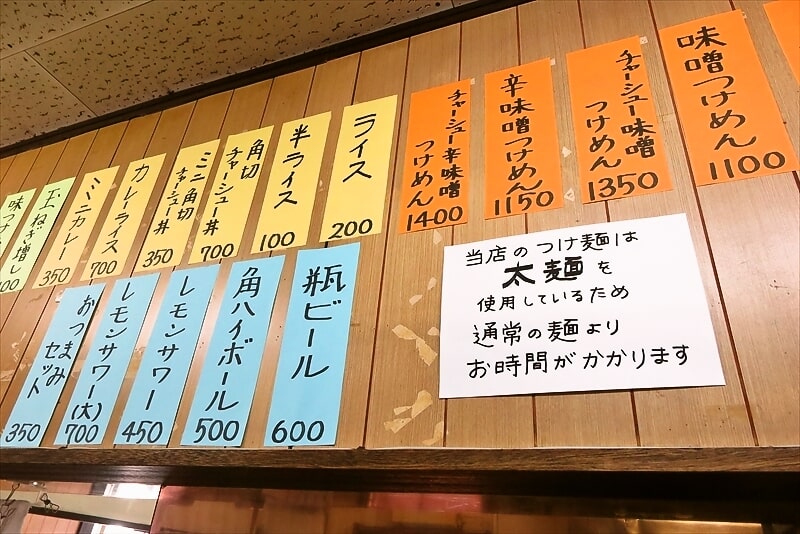 味噌つけめん
1100
チャーシュー味噌
つけめん
1350
辛味噌つけめん
1150
チャーシュー辛味噌
つけめん
1400
ライス
200
半ライス
100
角切
チャーシュー丼
700
ミニ角切
チャーシュー丼
350
カレーライス
700
ミニカレー
350
玉ねぎ増し
味つけ
当店のつけ麺は
太麺を
使用しているため
通常の麺より
お時間がかかります
瓶ビール
600
角ハイボール
500
レモンサワー
450
レモンサワー(大)
700
おつまみ
セット
350